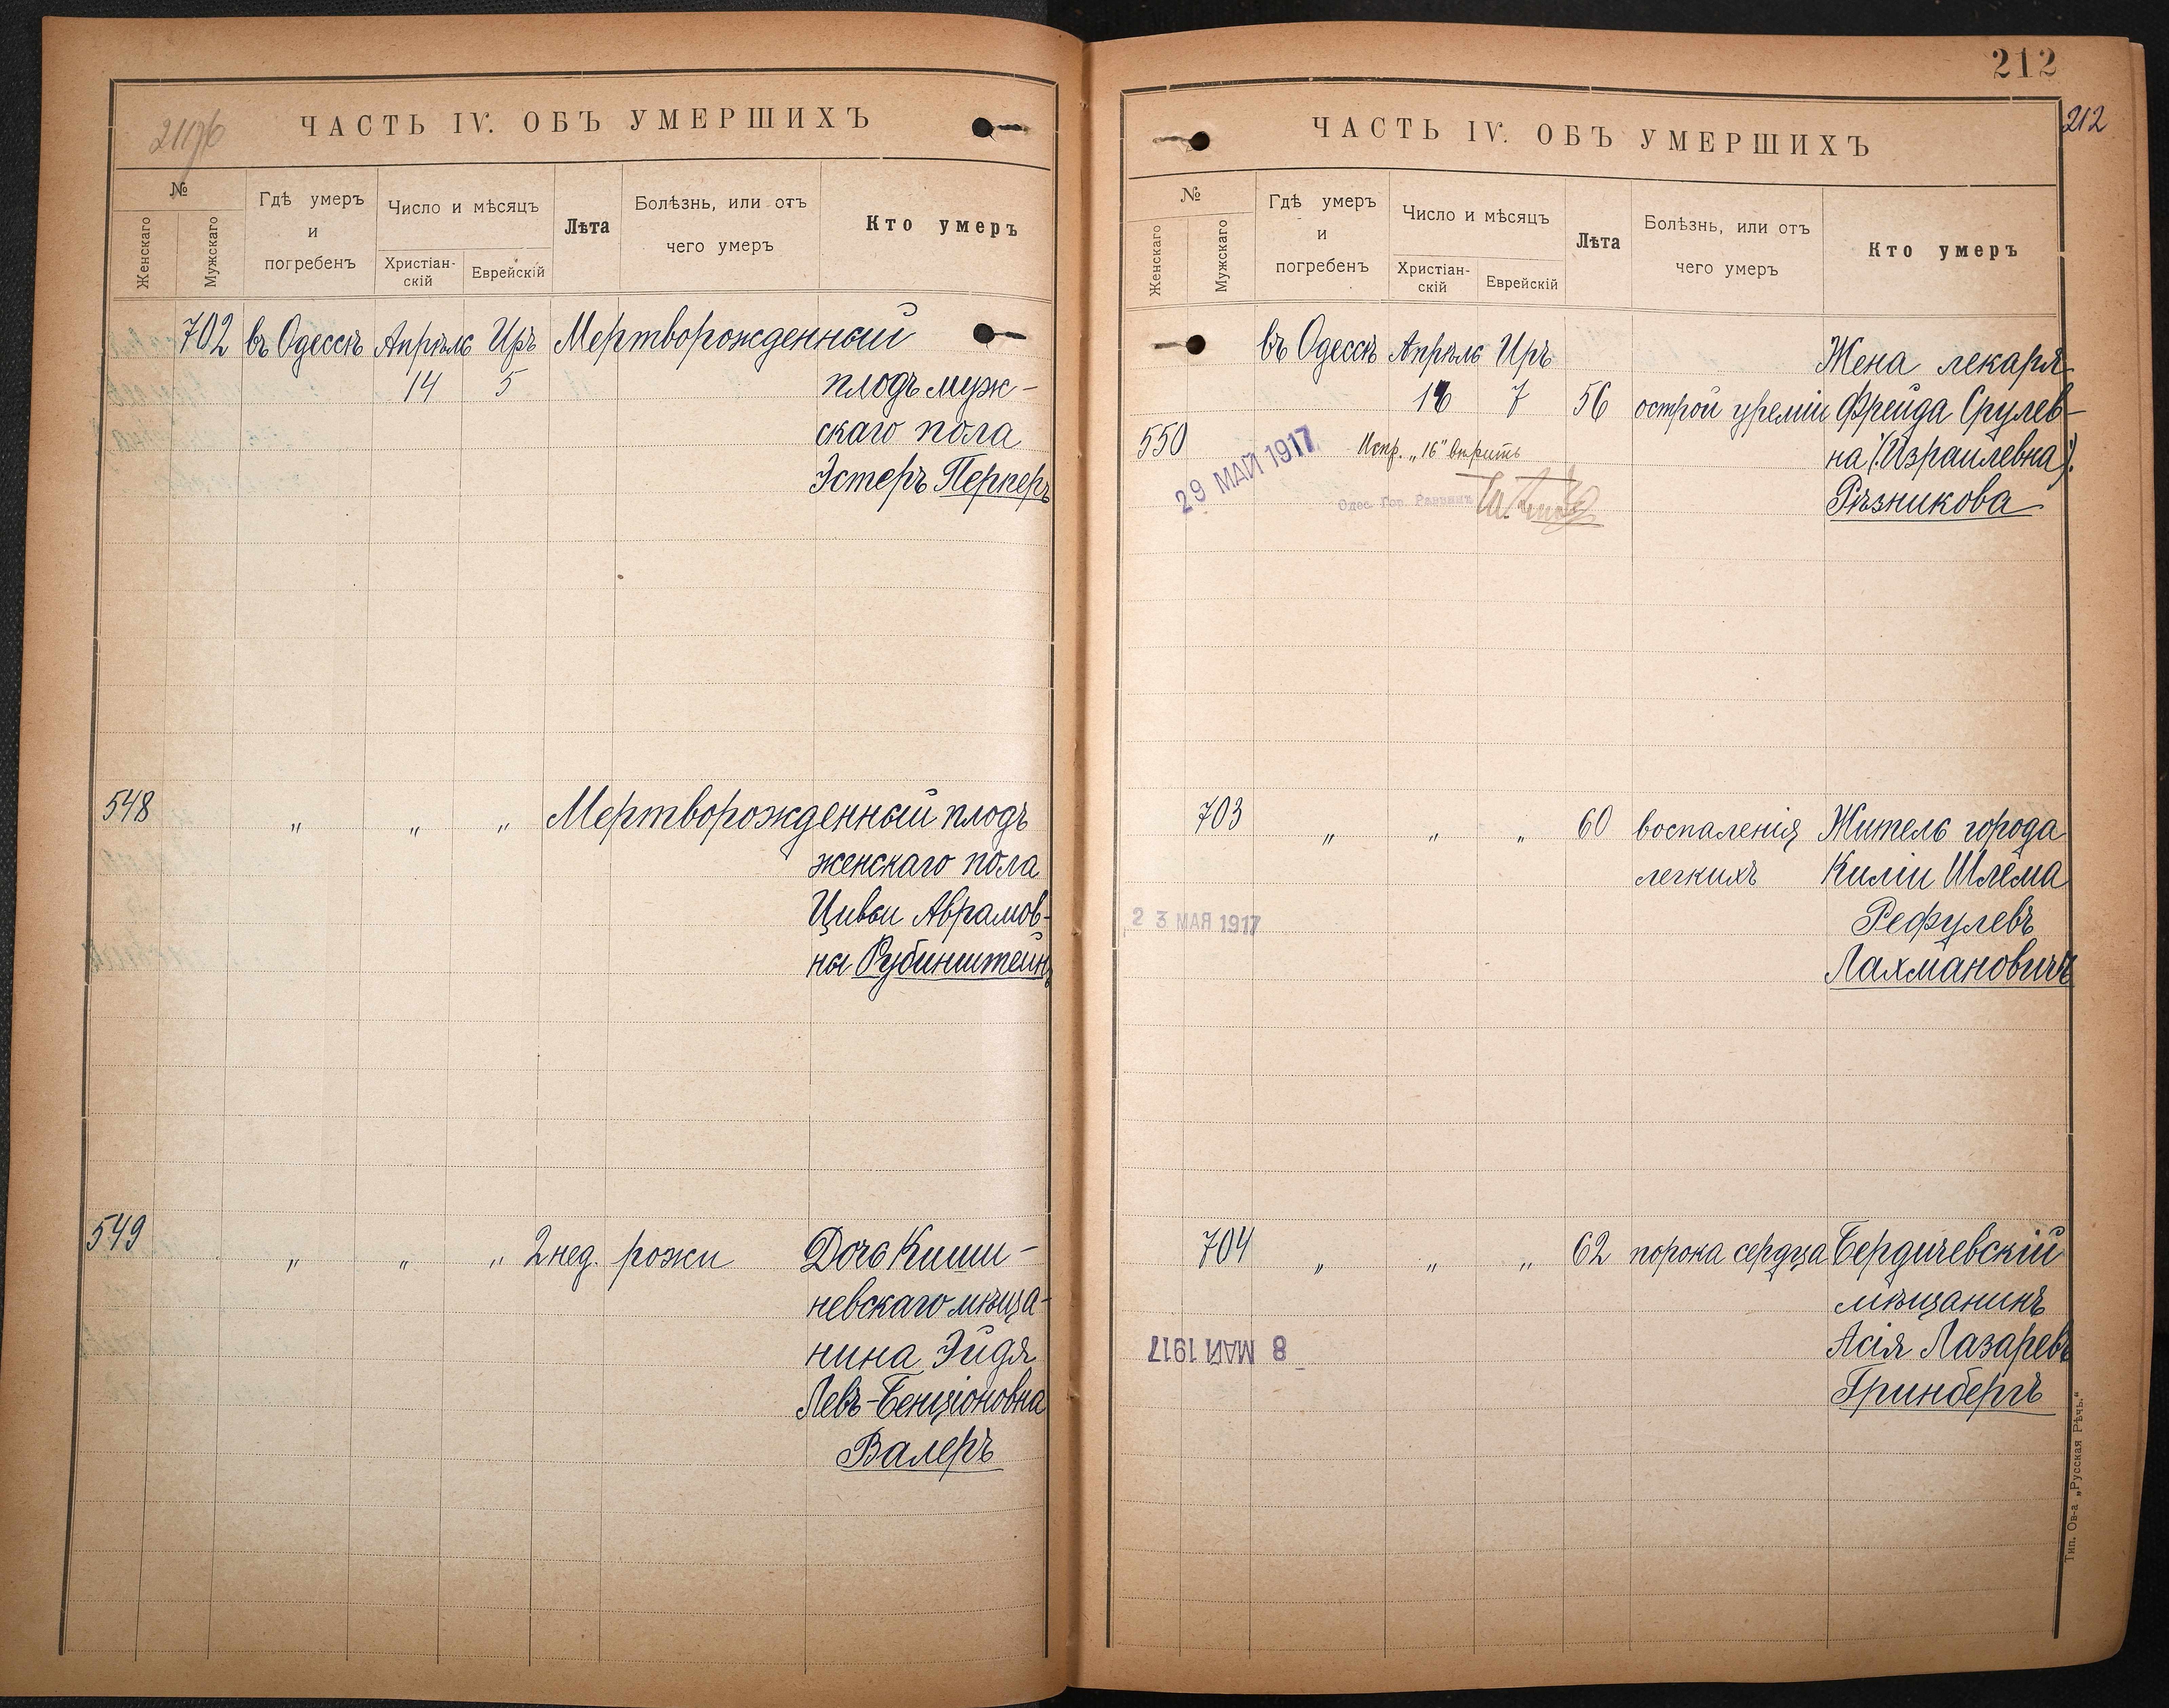 ЧАСТЬ IV. ОБЪ УМЕРШИХЪ
№
Женскаго
Мужскаго
Гдѣ умеръ
и
погребенъ
Число и мѣсяцъ
Христіан-
скій
Еврейскій
Лѣта
Болѣзнь, или отъ
чего умеръ
Кто умеръ
702 въ Одессѣ Апрѣль Иръ Мертворожденный
14 5 плодъ муж-
скаго пола
Эстеръ Перкеръ
548 „ „ „ Мертворожденный плодъ
женскаго пола
Цивьи Аврамов-
ны Рубинштейнъ
549 „ „ „ 2 нед. рожи Дочь Киши-
невскаго мѣща-
нина Эйдя
Левъ-Бенціоновна
Валеръ
212
212
ЧАСТЬ IV. ОБЪ УМЕРШИХЪ
№
Женскаго
Мужскаго
Гдѣ умеръ
и
погребенъ
Число и мѣсяцъ
Христіан-
скій
Еврейскій
Лѣта
Болѣзнь, или отъ
чего умеръ
Кто умеръ
въ Одессѣ Апрѣль Иръ Жена лекаря
16 7 56 острой уреміи Фрейда Срулев-
550 на (Израилевна)
Рѣзникова
29 МАЙ 1917
Испр. „16" вѣрить
Одес. Гор. Раввинъ
703 „ „ „ 60 воспаленія Житель города
легкихъ Киліи Шлема
Рефулевъ
Лахмановичъ
23 МАЯ 1917
704 „ „ „ 62 порока сердца Бердичевскій
мѣщанинъ
Асія Лазаревъ
Гринбергъ
8 МАЙ 1917
Тип. Ов-а „Русская Рѣчь."